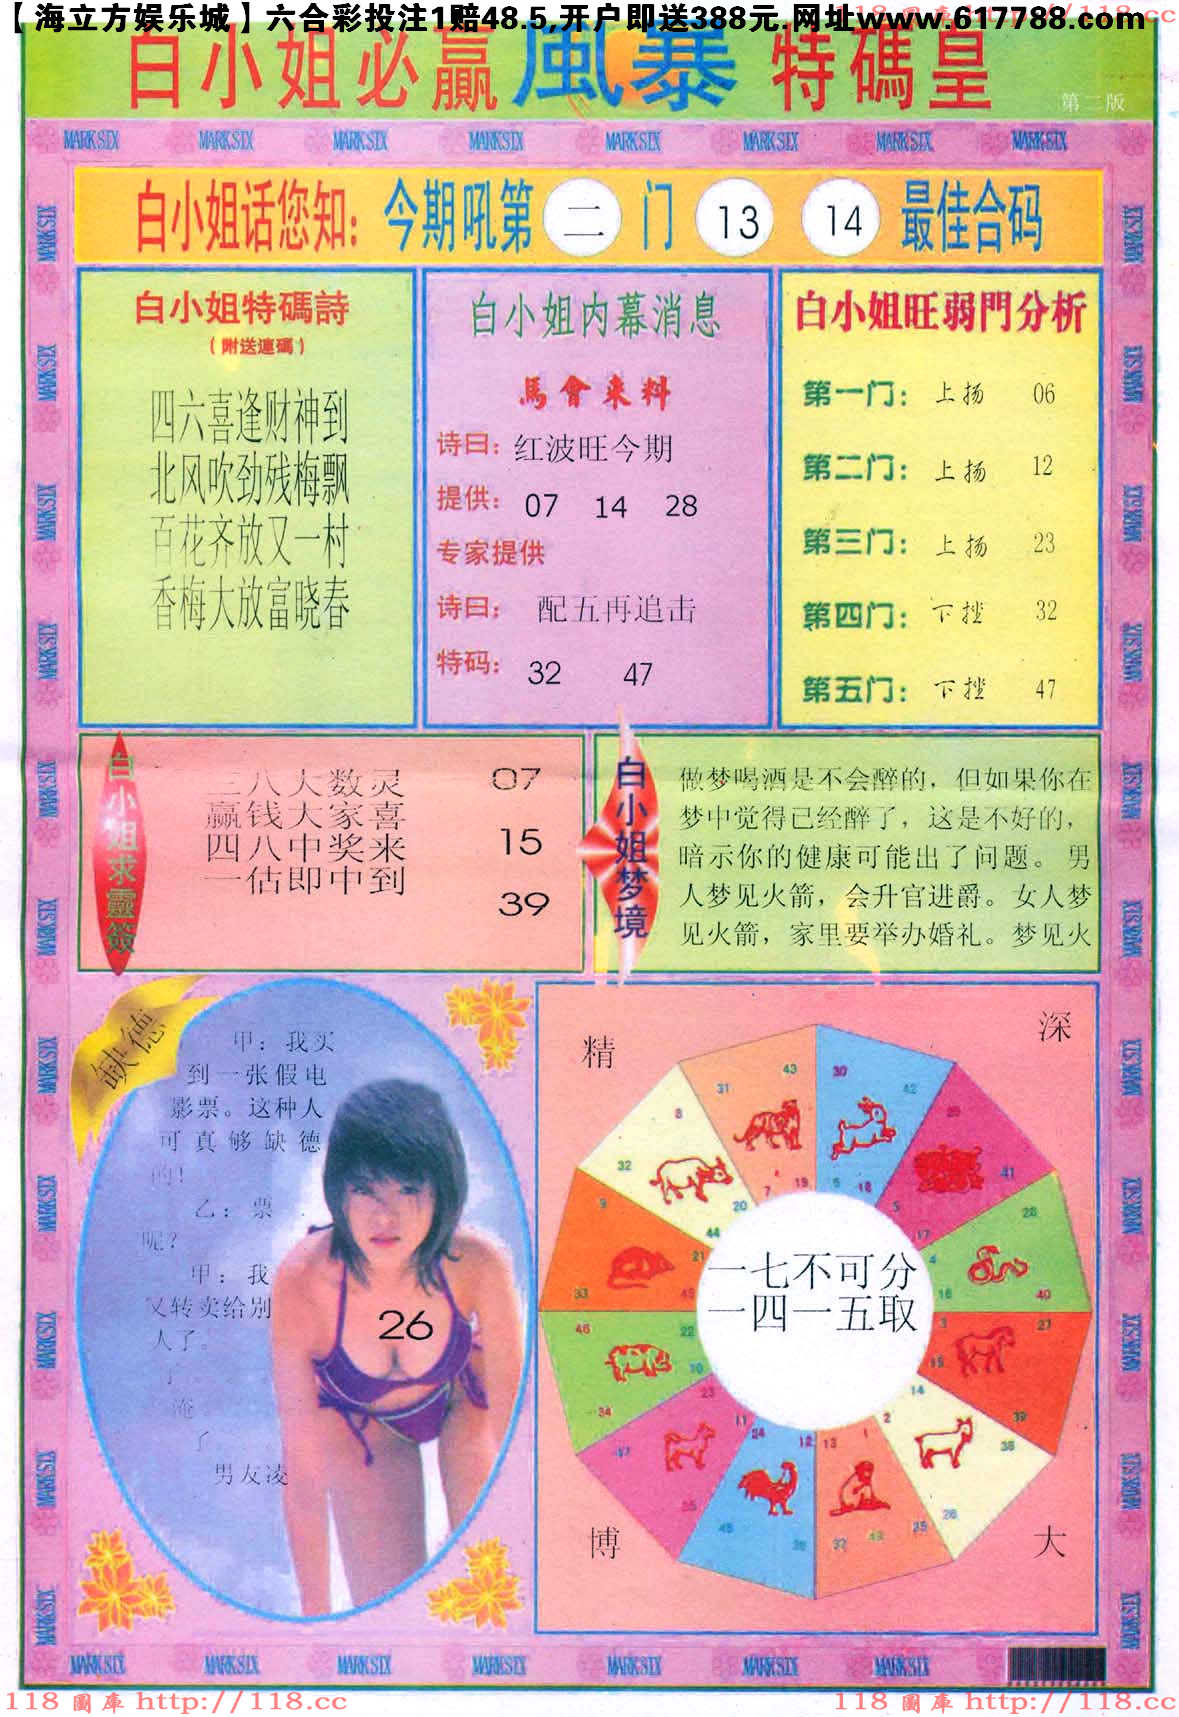 【海立方娱乐城】六合彩投注1赔48.5,开户即送388元.网址www.617788.com
118 圖庫 http://118.cc
白小姐必贏 風暴 特碼皇
第二版
MARK SIX MARK SIX MARK SIX MARK SIX MARK SIX MARK SIX MARK SIX MARK SIX
白小姐话您知: 今期吼第 二 门 13 14 最佳合码
白小姐特碼詩
(附送連碼)
四六喜逢财神到
北风吹劲残梅飘
百花齐放又一村
香梅大放富晓春
白小姐内幕消息
馬會来料
诗曰: 红波旺今期
提供: 07 14 28
专家提供
诗曰: 配五再追击
特码: 32 47
白小姐旺弱門分析
第一门: 上扬 06
第二门: 上扬 12
第三门: 上扬 23
第四门: 下挫 32
第五门: 下挫 47
白小姐求靈簽
三八大数灵 07
赢钱大家喜
四八中奖来 15
一估即中到
39
白小姐梦境
做梦喝酒是不会醉的，但如果你在
梦中觉得已经醉了，这是不好的，
暗示你的健康可能出了问题。男
人梦见火箭，会升官进爵。女人梦
见火箭，家里要举办婚礼。梦见火
缺德
甲：我买
到一张假电
影票。这种人
可真够缺德
的!
乙：票
呢?
甲：我
又转卖给别
人了。
了
淹
了
男友凌
26
精
深
博
大
一七不可分
一四一五取
MARK SIX MARK SIX MARK SIX MARK SIX MARK SIX MARK SIX MARK SIX
118 圖庫 http://118.cc
118 圖庫 http://118.cc